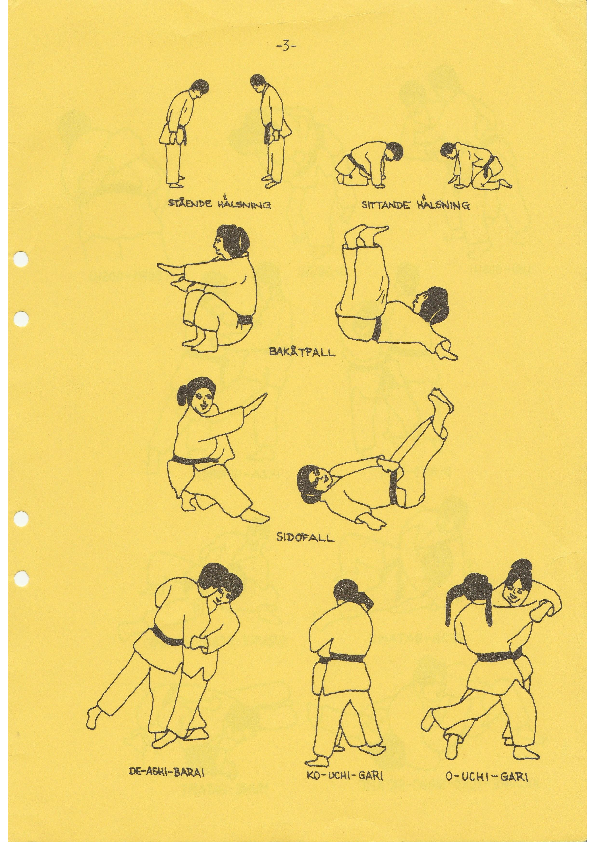 -3-
STÅENDE HÄLSNING
SITTANDE HÄLSNING
BAKÅTFALL
SIDOFALL
DE-ASHI-BARAI
KO-UCHI-GARI
O-UCHI-GARI